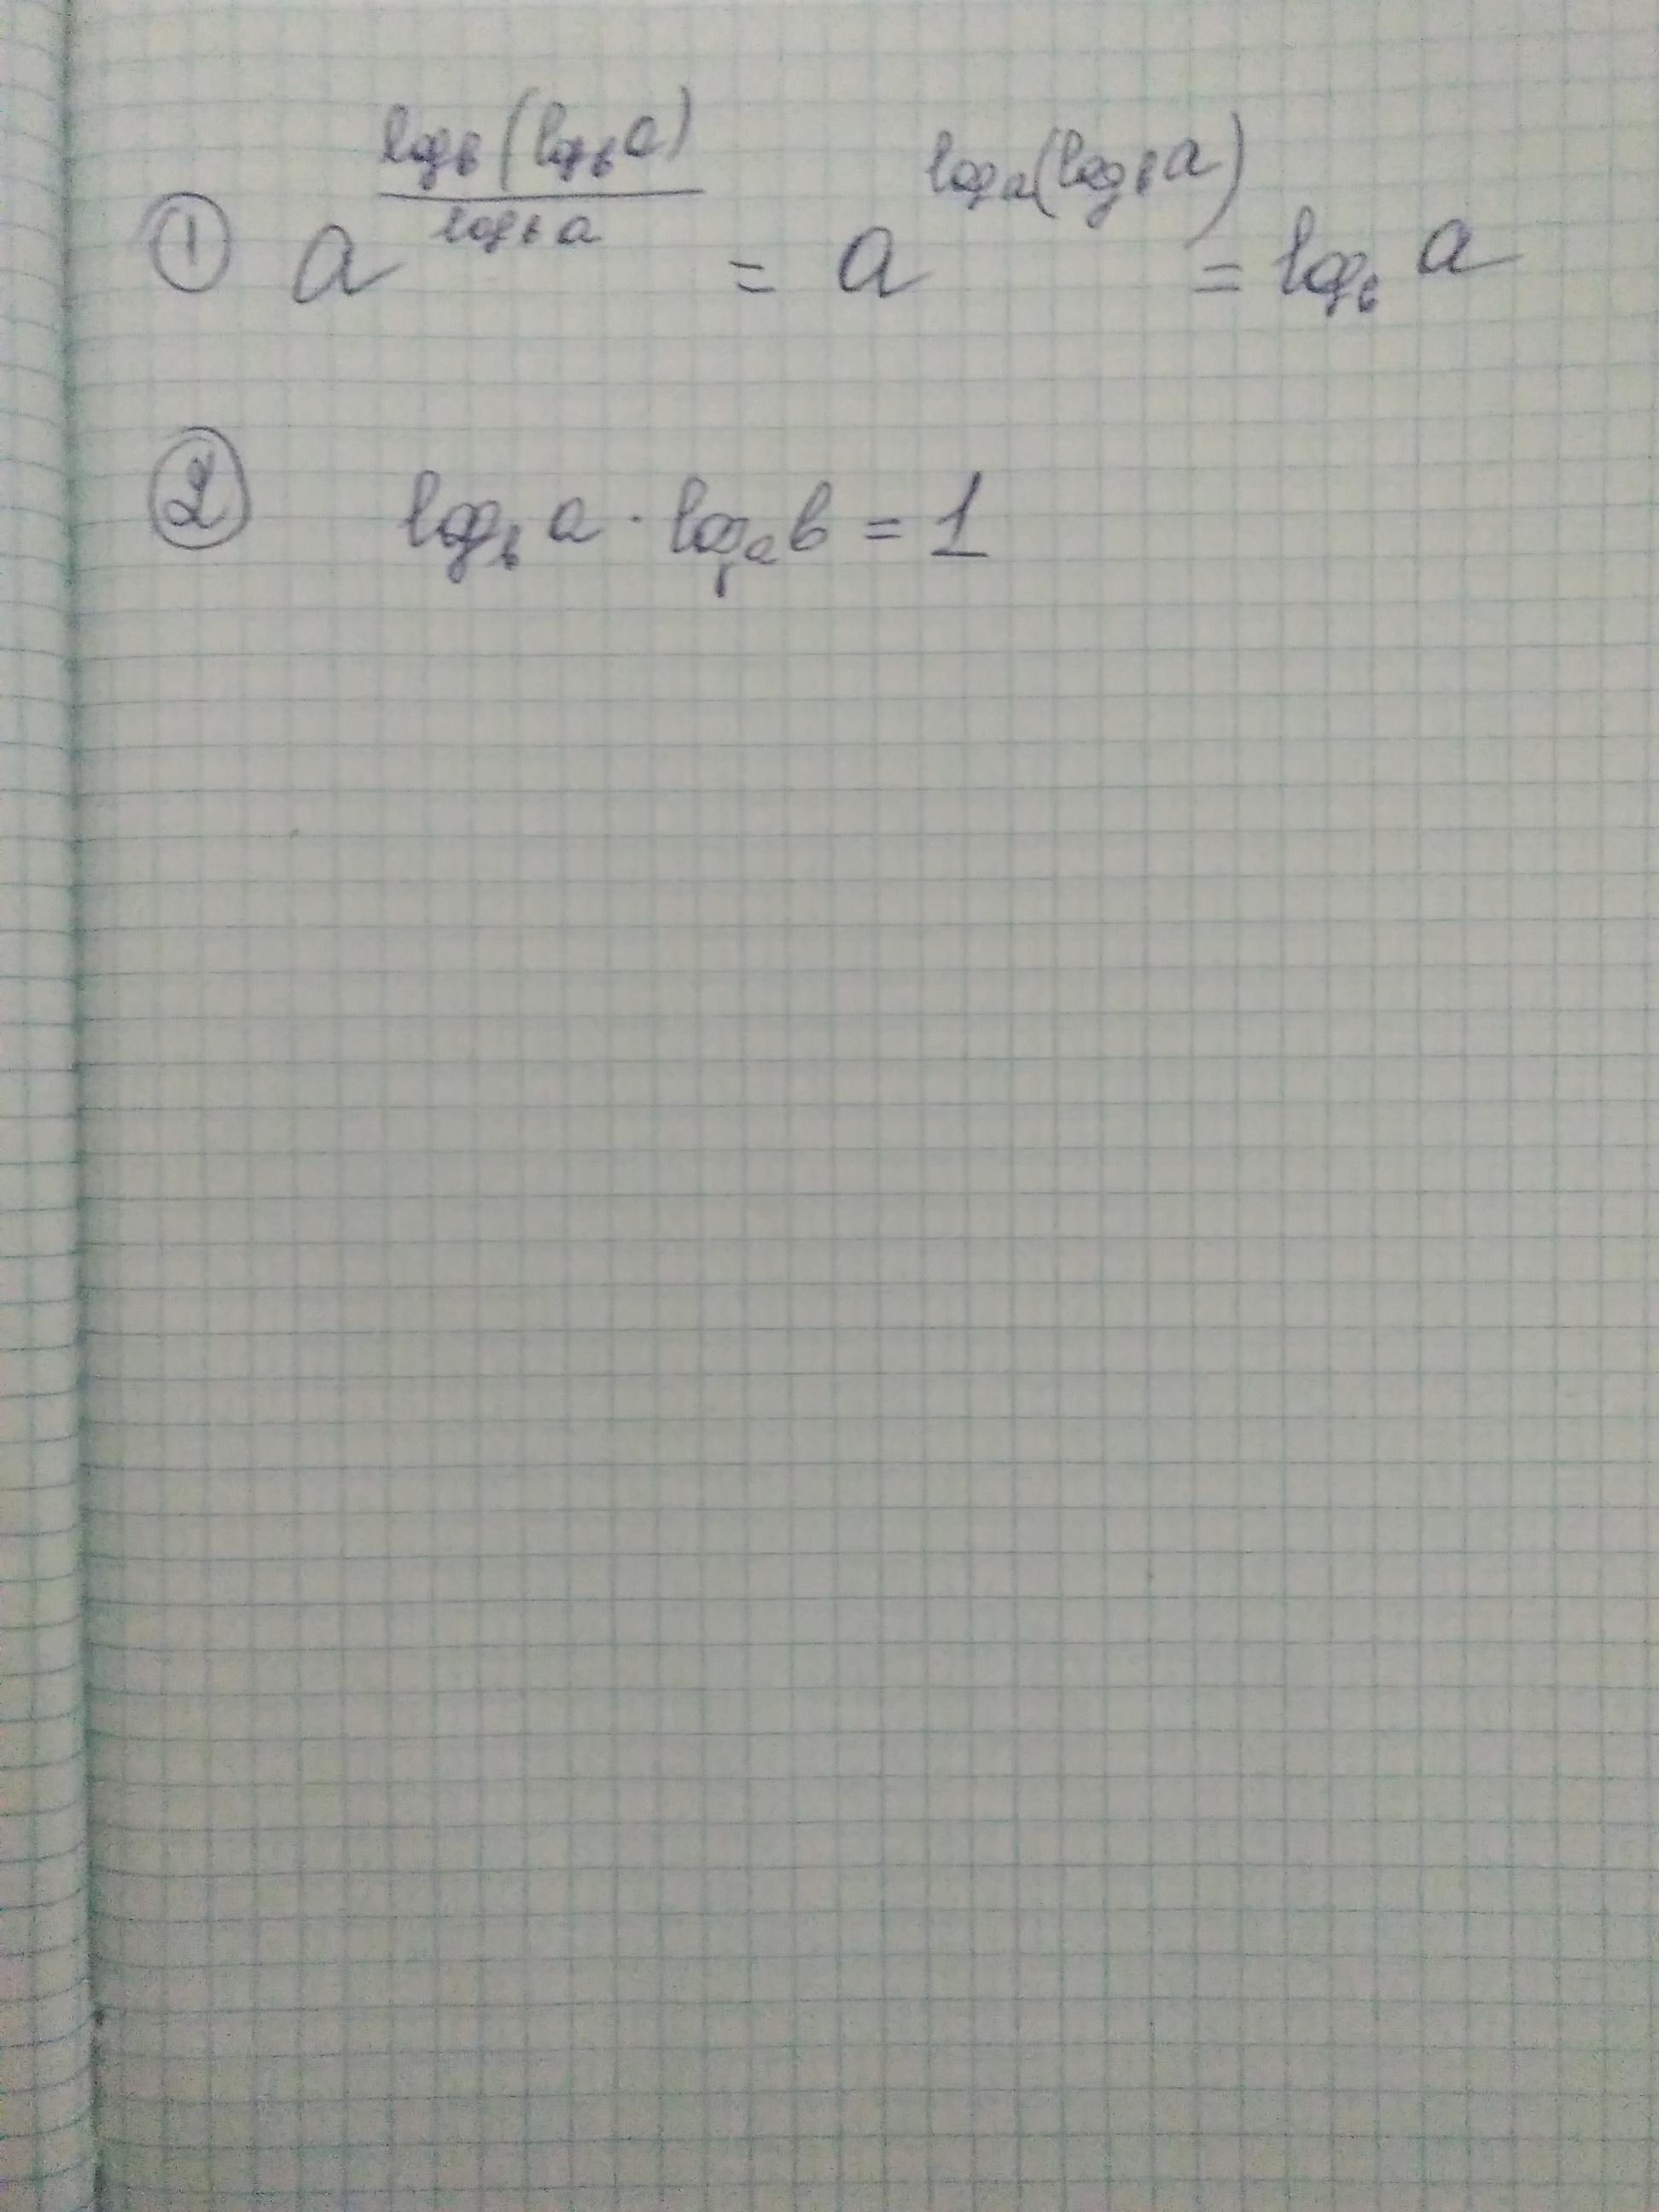 ① a^((log_b(log_b a))/(log_b a)) = a^(log_a(log_b a)) = log_b a
② log_b a · log_a b = 1